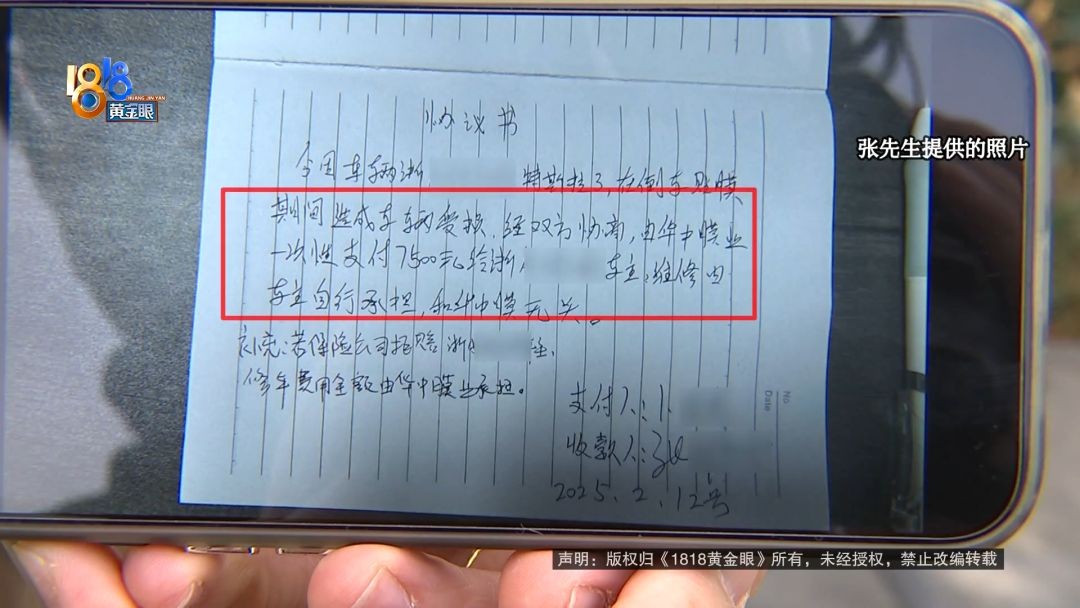 1818
HUANG JIN YAN
黄金眼
张先生提供的照片
协议书
今因车辆浙 特斯拉3,在倒车贴膜
期间造成车辆受损,经双方协商,由华中膜业
一次性支付7500元给浙 车主,维修由
车主自行承担,和华中膜无关。
补充:若保险公司拒赔浙
修车费用全额由华中膜业承担。
支付人:
收款人:张
2025.2.12号
No
Date
声明:版权归《1818黄金眼》所有,未经授权,禁止改编转载